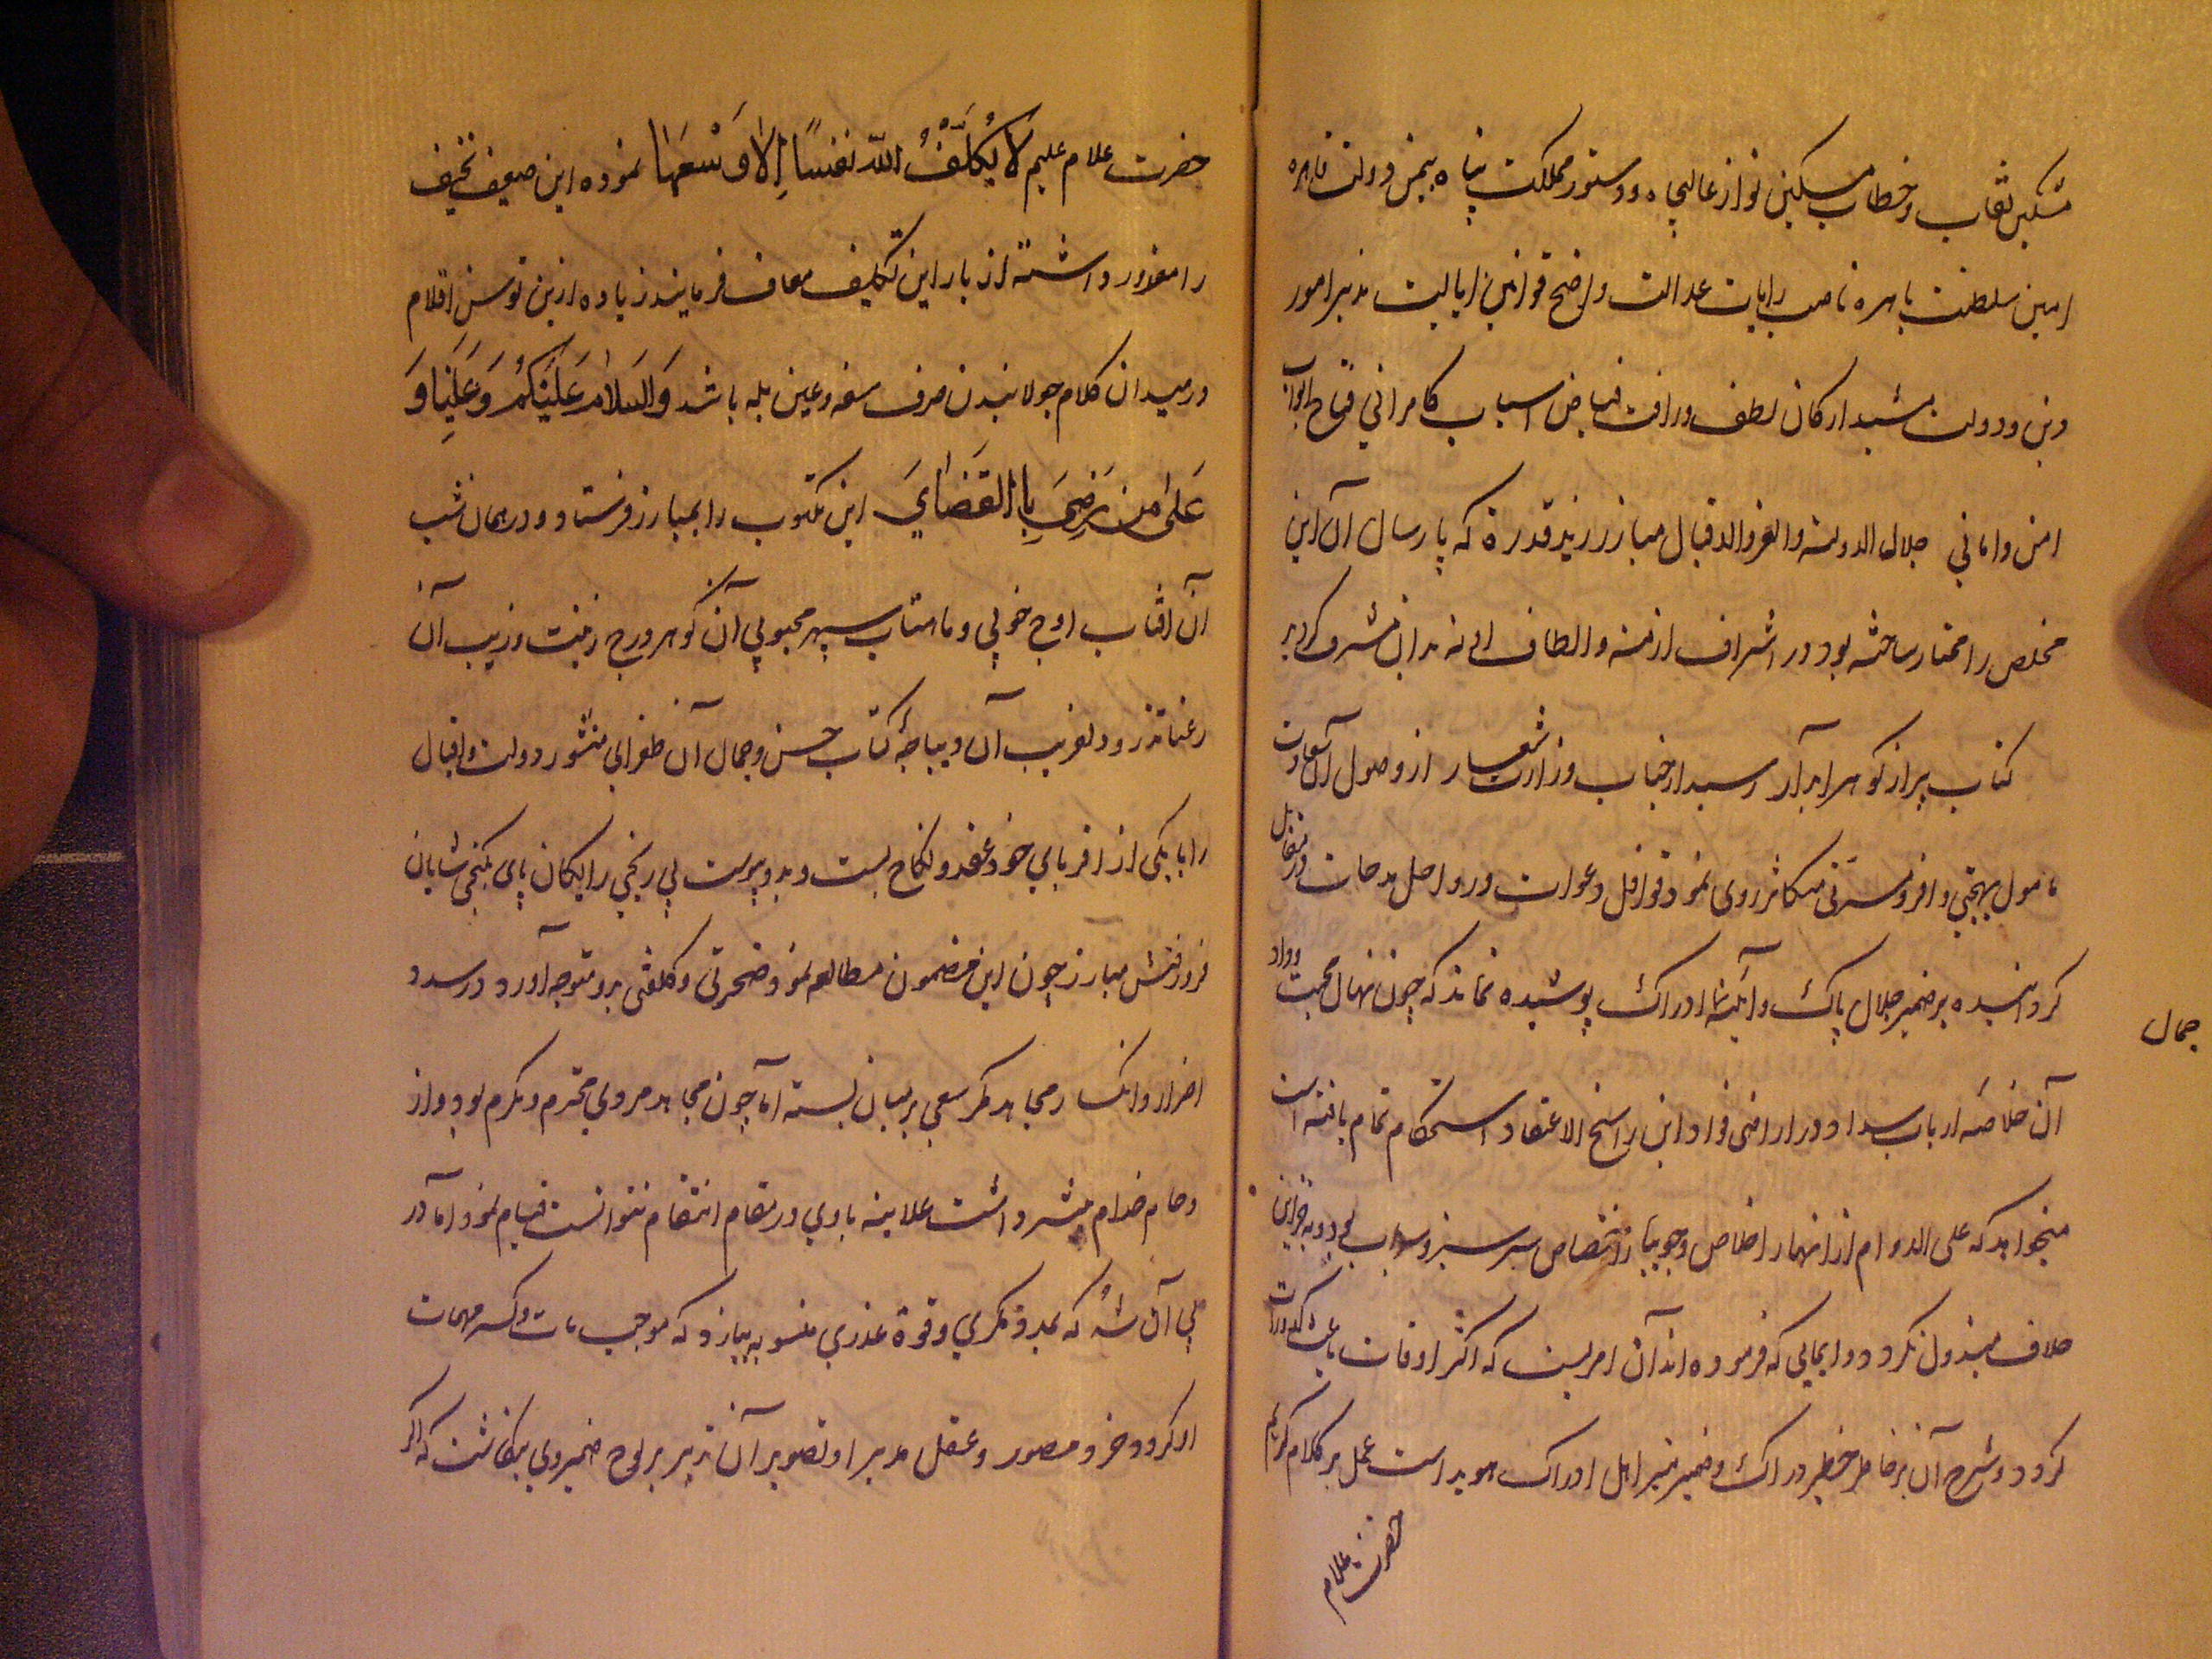 مشکین نقاب و خطاب مسکین نواز عالیجاه و دستور مملکت پناه یمین دولت قاهره
امین سلطنت باهره ناصب رایات عدالت واضح قوانین ایالت مدبر امور
دین و دولت مشید ارکان لطف و رافت فیاض اسباب کامرانی فتاح ابواب
امن و امانی جلال الدولة والعز والاقبال مبارز زید قدره که بارسال آن این
مخلص را ممتاز ساخته بود در اشراف ازمنه و الطاف اونه بدان مشرف کردید
کتاب پر از کوهر ابدار رسید از جناب وزارت شعار از وصول آن سعادت
مامول بهجتی وافر و مسرتی متکاثر روی نمود قوافل دعوات و رواحل مدحات در مقابل
کردانیده بر ضمیر جلال پاک و آینه ادراک پوشیده نماند که چون نهال محبت و وداد
جمال
آن خلاصه ارباب سداد در اراضی فواد این راسخ الاعتقاد استحکام تمام یافته است
میخواهد که علی الدوام از انهار اخلاص و جویبار اختصاص سرسبز و سیراب بود و به قراین
خلاف مبذول نکردد و ایمایی که فرموده اند آن امریست که اکثر اوقات باعث کدورات
کردد و شرح آن بر خاطر خطیر دراک و ضمیر منیر اهل ادراک هویداست عمل بر کلام کریم
حضرت علام
حضرت علام علیم لَا یُکَلِّفُ اللّه نَفْسًا اِلّا وُسْعَهَا نموده این ضعیف نحیف
را معذور داشته از بار این تکلیف معاف فرمایند زیاده ازین توسن اقلام
در میدان کلام جولانیدن صرف سفه و عین بله باشد وَالسَلامُ عَلَیْکُمْ وَ عَلَیْنا وَ
عَلی مَن رَضِیَ بِاالقَضَایَ این مکتوب را بمبارز فرستاد و در همان شب
آن افتاب اوج خوبی و ماهتاب سپهر محبوبی آن کوهر درج زینت و زیب آن
رعنا تذرو دلفریب آن دیباجهٔ کتاب حسن و جمال آن طغرای منشور دولت و اقبال
را با یکی از اقربای خود عقد و نکاح بست و بدو پیوست بی رنجی رایکان پای بکنجی شایان
فرو رفتش مبارز چون این مضمون مطالعه نمود ضجرتی و کلفتی برو متوجه آورد در صدد
اضرار و انکسار مجاهد کمر سعی بر میان بسته اما چون مجاهد مردی محترم و مکرم بود و از
و حام خدام بیشتر داشت علانیه با وی در مقام انتقام نتوانست قیام نمود اما در
پی آن شد که بمدد مکری و قوة غدری منسوبه بیازد که موجب مات و کسر مهمات
او کردد خرد مصور و عقل مدبر او تصویر آن تدبیر بر لوح ضمیر وی بنکاشت که اکر